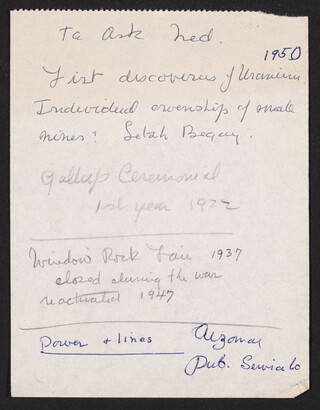 To Ask Ned.
1950
First discoverers of Uranium
Individual ownership of small
mines? Selah Begay.
Gallup Ceremonial
1st year 1922
Window Rock Fair 1937
closed during the war
reactivated 1947
Power + lines
Arizona
Pub. Service Co